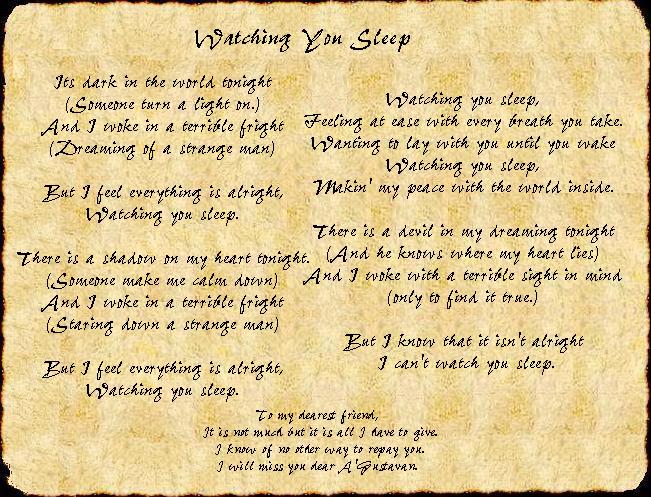 Watching You Sleep
Its dark in the world tonight
(Someone turn a light on.)
And I woke in a terrible fright
(Dreaming of a strange man)
But I feel everything is alright,
Watching you sleep.
There is a shadow on my heart tonight.
(Someone make me calm down)
And I woke in a terrible fright
(Staring down a strange man)
But I feel everything is alright,
Watching you sleep.
Watching you sleep,
Feeling at ease with every breath you take.
Wanting to lay with you until you wake
Watching you sleep,
Makin' my peace with the world inside.
There is a devil in my dreaming tonight
(And he knows where my heart lies)
And I woke with a terrible sight in mind
(only to find it true.)
But I know that it isn't alright
I can't watch you sleep.
To my dearest friend,
It is not much but it is all I have to give.
I know of no other way to repay you.
I will miss you dear A'Gustavan.